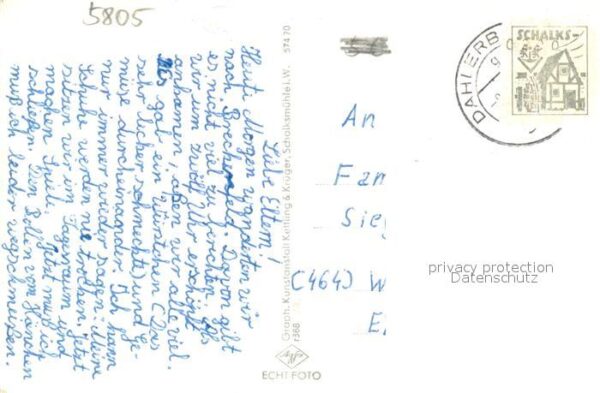 5805
Liebe Eltern!
Heute Morgen wanderten wir
nach Breckerfeld. Davon gibt
es nicht viel zu berichten. Als
wir um zwölf Uhr erschöpft
ankamen, aßen wir alle viel.
Es gab ein Würstchen (Das
sehr lecker schmeckte) und Ge-
müse durcheinander. Ich kann
nur immer wieder sagen: Meine
Schuhe werden nie trocken. Jetzt
sitzen wir im Tagesraum und
machen Spiele. Jetzt muß ich
schließen. Den Bollen vom Hänchen
muß ich leider wegschmeißen.
Graph. Kunstanstalt Kettling & Krüger, Schalksmühle i. W. 57470
r368
Agfa
ECHT FOTO
An
Fam
Sieg
(464) W
E
DAHLERB
SCHALKS-
privacy protection
Datenschutz